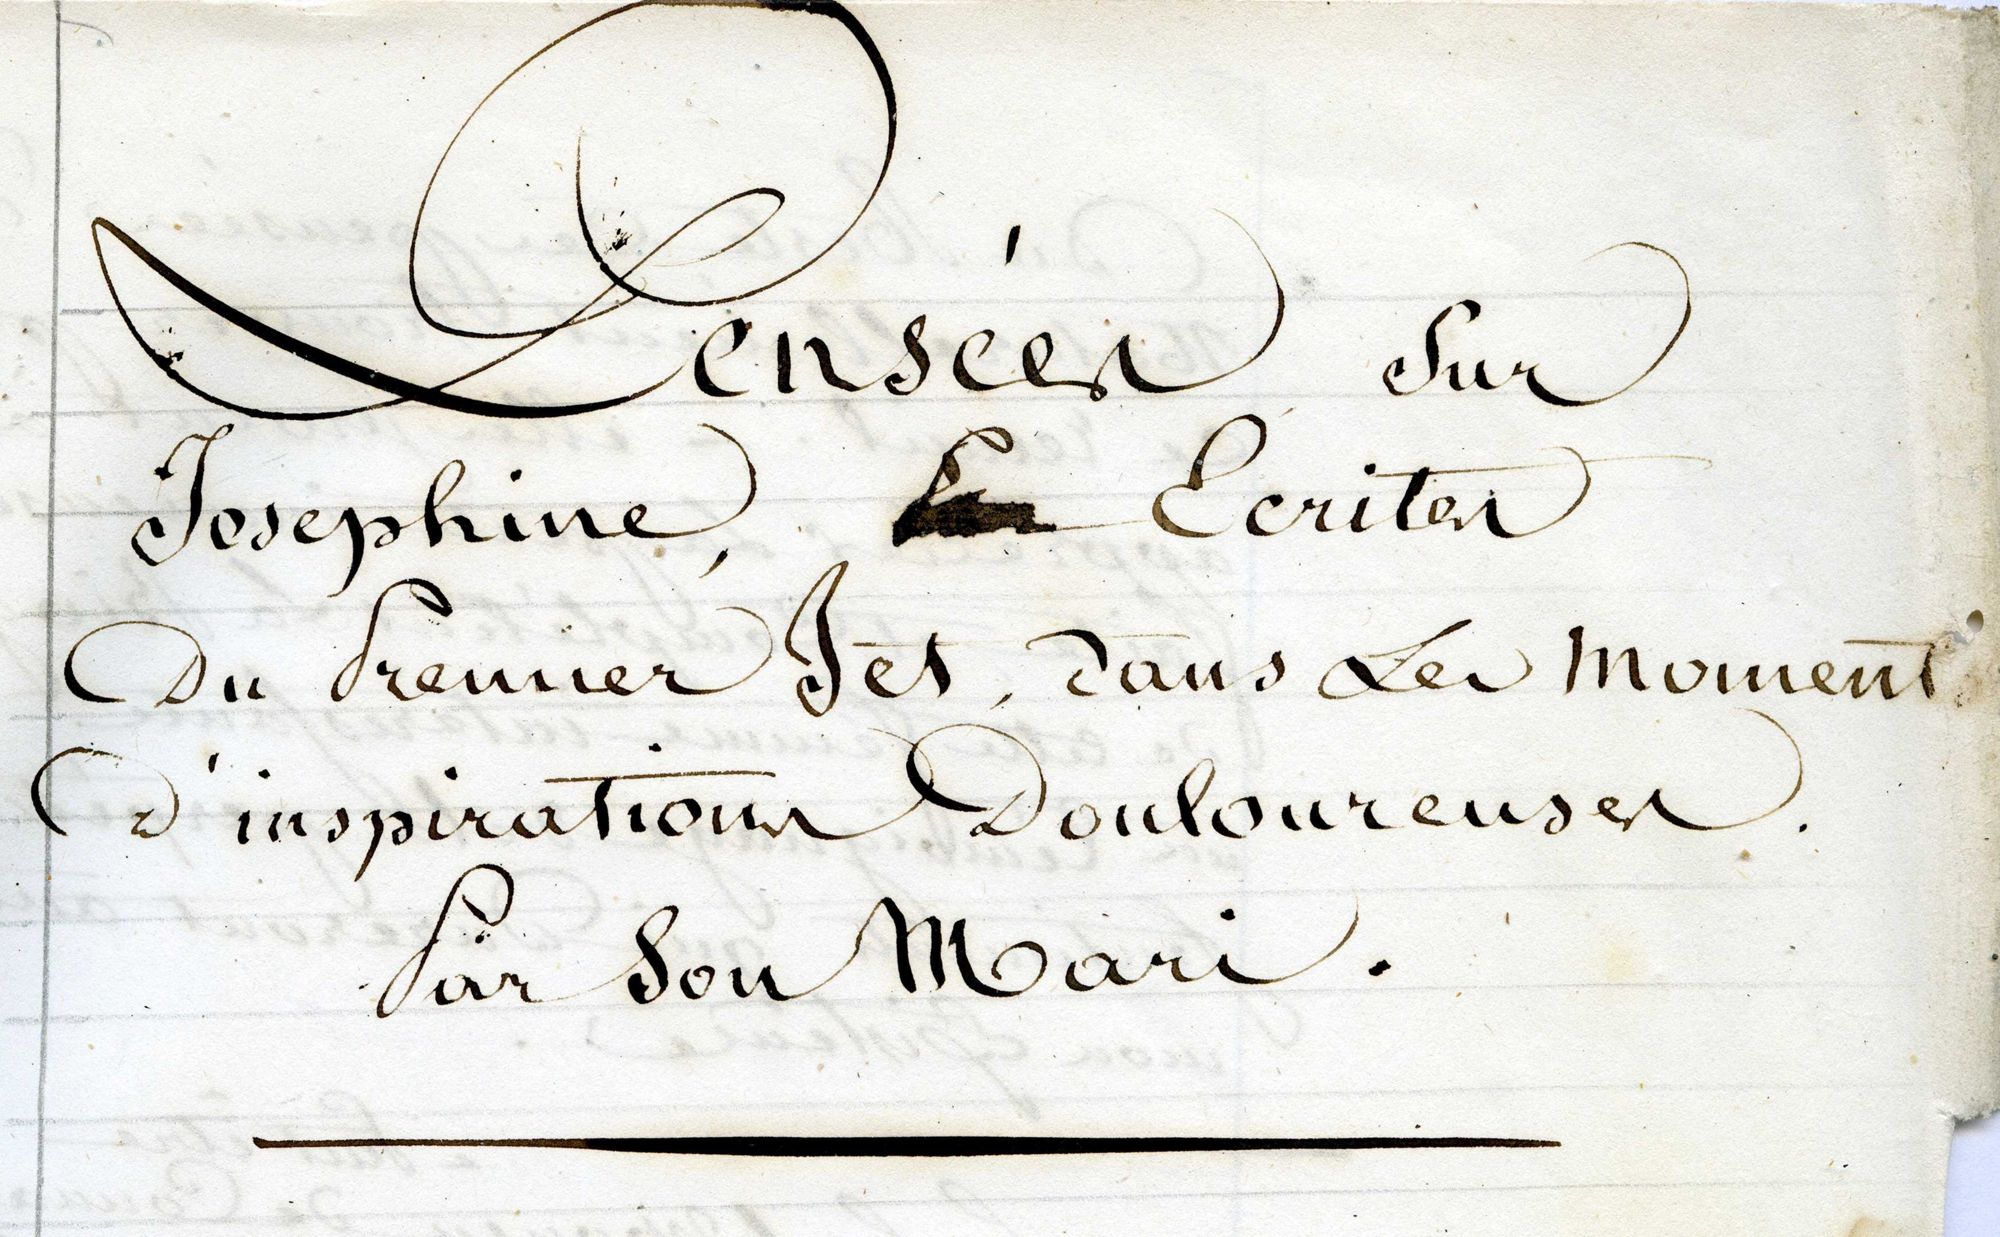 Pensées sur
Josephine, Ecrites
Du Premier Jet, dans Les Moment
d'inspirations Douloureuses.
Par Son Mari.